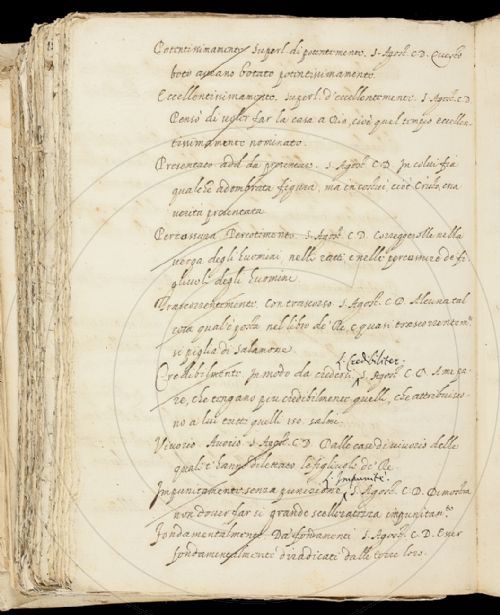 Potentissimamente. Superl. di potentemente. S. Agost. C. D. Questo
boto aueano botato potentissimamente.
Eccellentissimamente. Superl. d'eccellentemente. S. Agost. C. D.
Pensò di voler far la casa a Dio, cioè quel tempio eccellen-
tissimamente nominato.
Presentato add. da presentare. S. Agost. C. D. In colui fia
qualche adombrata figura, ma in costui, cioè Cristo, essa
verità presentata
Percossura Percotimento. S. Agost. C. D. Correggerolle nella
verga degli huomini, nelli tatti e nelle percussure de fi-
gliuoli degli huomini.
Trascorrentemente. Con trascorso S. Agost. C. D. Alcuna tal
cosa qual'è posta nel libro de' Re, e quasi trascorrentemte.
si piglia di Salamone.
l. Credibiliter.
Credibilmente In modo da credersi S. Agost. C. D. A me pa-
re, che tengano piu credibilmente quelli, che attribuisco-
no a lui tutti quelli 150. salmi.
Viuorio Auorio S. Agost. C. D. Dalle case di viuorio delle
quali t'hanno dilettato le figliuole de' Re
l. Impunité.
Impunitamente senza punizione S. Agost. C. D. Dimostra
non douer far si grande scelleratezza impunitamte.
Fondamentalmente. Da' fondamenti S. Agost. C. D. Ever
fondamentalmente diradicati dalle terre loro.